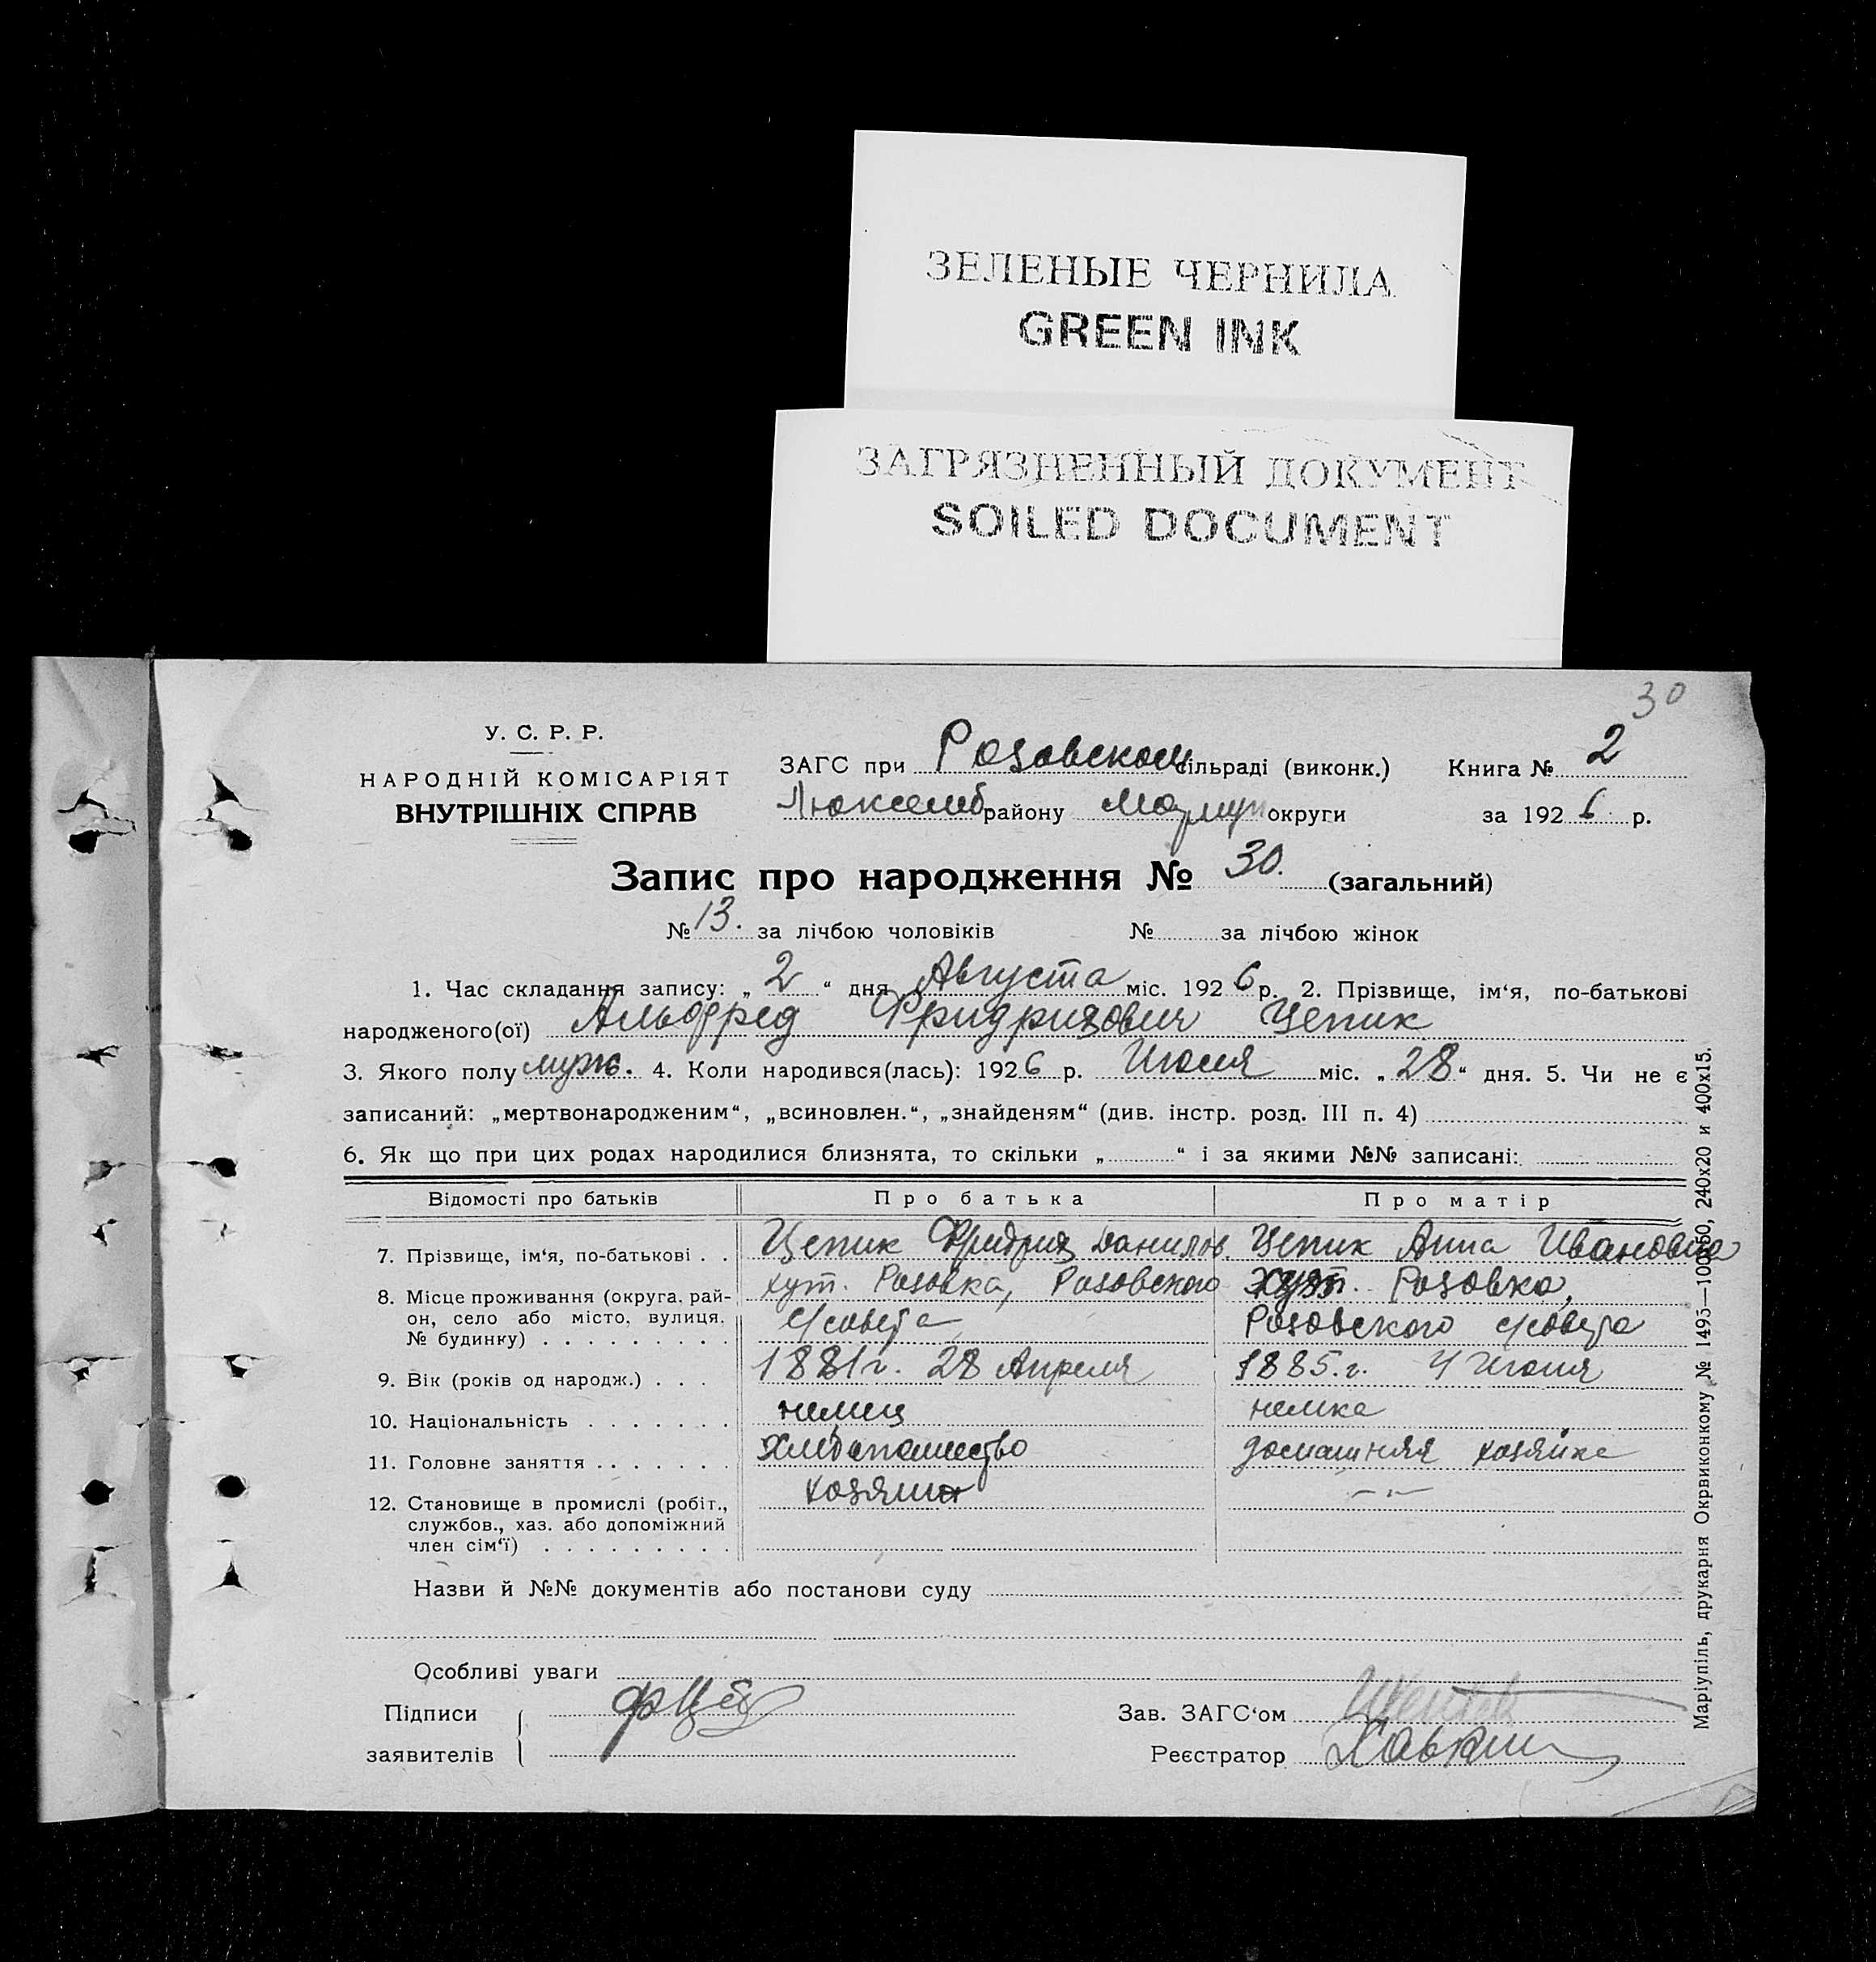 ЗЕЛЕНЫЕ ЧЕРНИЛА
GREEN INK
ЗАГРЯЗНЕННЫЙ ДОКУМЕНТ
SOILED DOCUMENT
30
У. С. Р. Р.
НАРОДНІЙ КОМІСАРІЯТ
ВНУТРІШНІХ СПРАВ
ЗАГС при Розовском сільраді (виконк.) Книга № 2
Люксемб району Мариуп округи за 1926 р.
Запис про народження № 30. (загальний)
№ 13. за лічбою чоловіків № за лічбою жінок
1. Час складання запису: „2“ дня Августа міс. 1926 р. 2. Прізвище, ім‘я, по-батькові
народженого(ої) Альфред Фридрихович Цепик
3. Якого полу муж. 4. Коли народився(лась): 1926 р. Июля міс. „28“ дня. 5. Чи не є
записаний: „мертвонародженим“, „всиновлен.“, „знайденям“ (див. інстр. розд. III п. 4)
6. Як що при цих родах народилися близнята, то скільки „ “ і за якими №№ записані:
Відомості про батьків Про батька Про матір
7. Прізвище, ім‘я, по-батькові . . Цепик Фридрих Данилов. Цепик Анна Ивановна
8. Місце проживання (округа, рай- хут. Розовка, Розовского хут. Розовка,
он, село або місто, вулиця, с/совета Розовского с/совета
№ будинку) . . . . . . . . .
9. Вік (років од народж.) . . . 1881 г. 28 Апреля 1885. г. 4 Июня
10. Національність . . . . . . . немец немка
11. Головне заняття . . . . . . . Хлебопашество домашняя хозяйка
12. Становище в промислі (робіт., хозяин – „ –
службов., хаз. або допоміжний
член сім‘ї) . . . . . . . . .
Назви й №№ документів або постанови суду
Особливі уваги
Підписи
заявителів
Зав. ЗАГС‘ом
Реєстратор
Маріупіль, друкарня Окрвиконкому № 1495—100х50, 240х20 и 400х15.